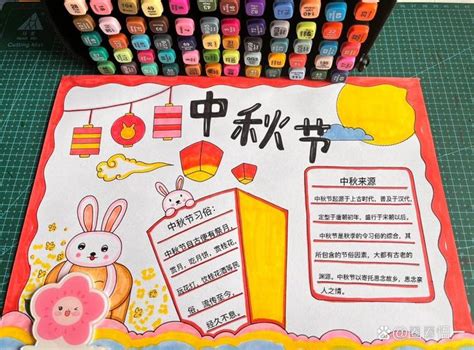 中秋节
中秋节习俗:
中秋节自古便有祭月、
赏月、吃月饼、赏桂花、
玩花灯、饮桂花酒等民
俗,流传至今,
经久不息。
中秋来源
中秋节起源于上古时代,普及于汉代,
定型于唐朝初年,盛行于宋朝以后。
中秋节是秋季的令习俗的综合,其
所包含的节俗因素,大都有古老的
渊源。中秋节以寄托思念故乡,思念亲
人之情。